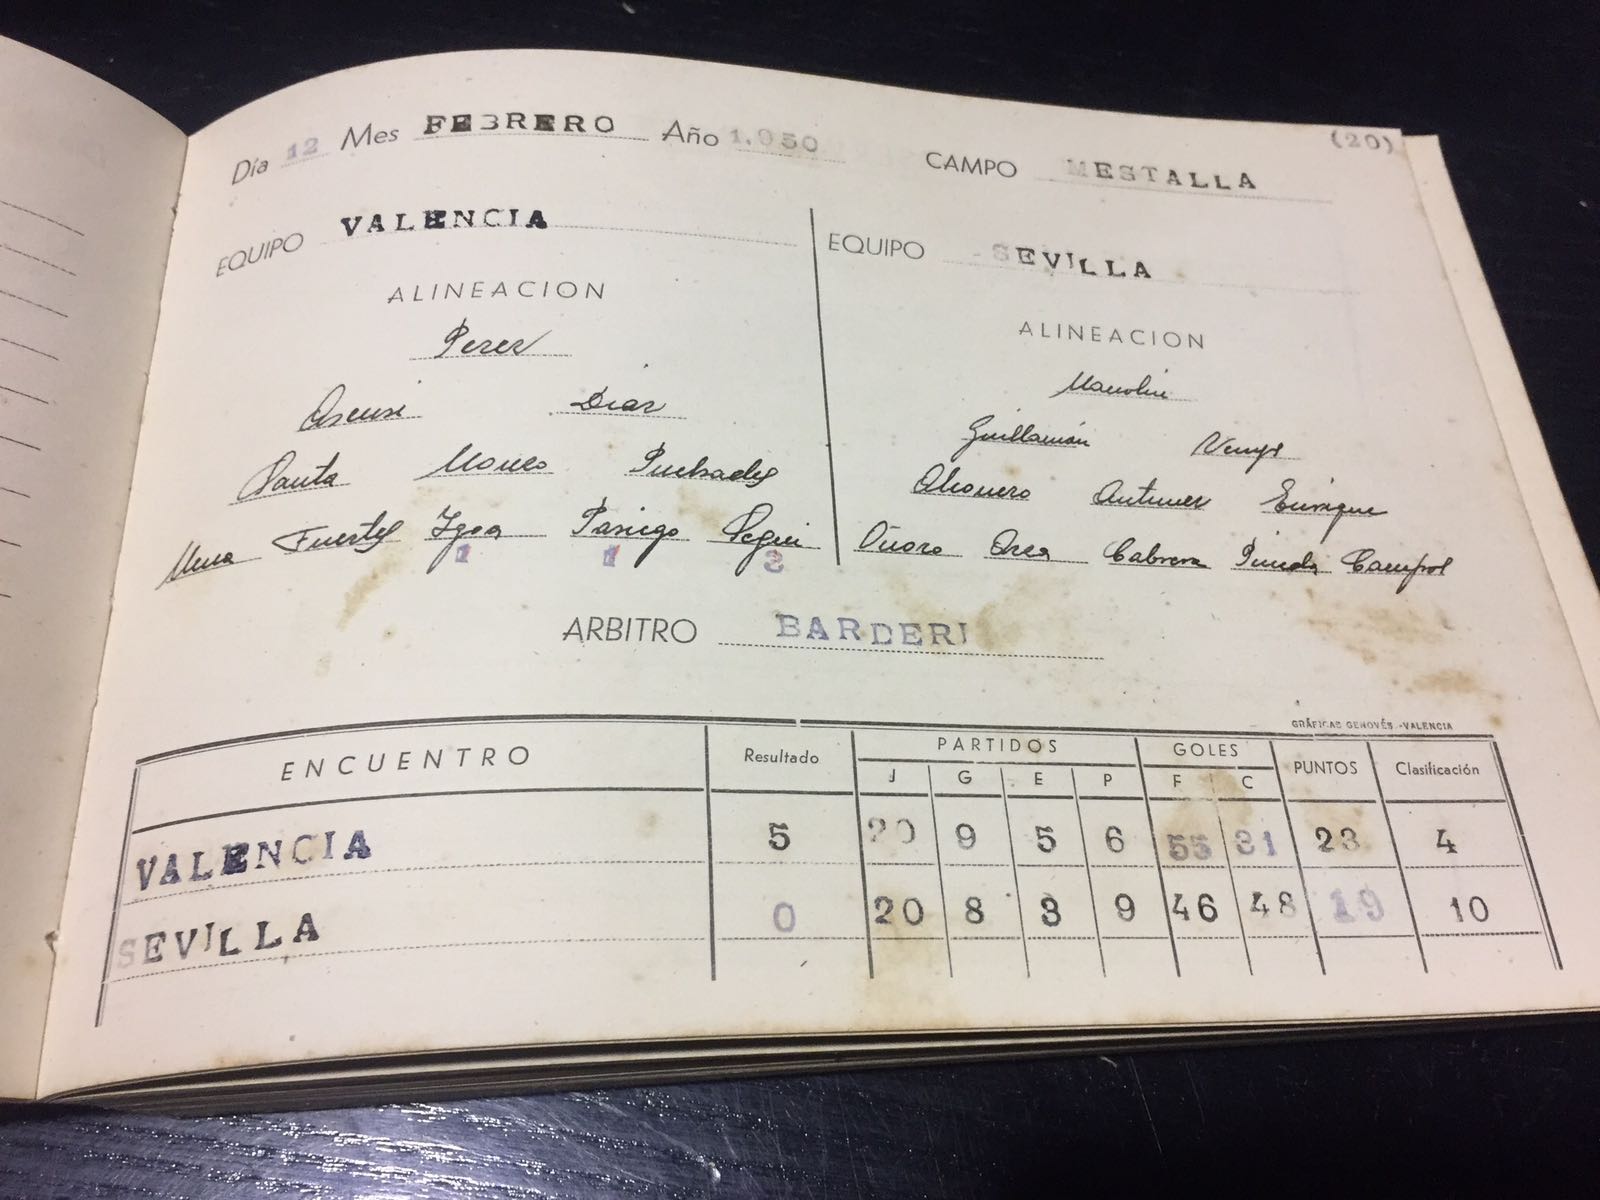 (20)
Día 12 Mes FEBRERO Año 1.950 CAMPO MESTALLA
EQUIPO VALENCIA
EQUIPO SEVILLA
ALINEACION
ALINEACION
Perez
Manolin
Asensi Diaz
Guillamón
Santa Monzo Puchades
Antunez Enrique
Mena Fuertes Igoa Pasiego Segui
1 1 3
Oñoro Arza Cabrera Pineda Campos
ARBITRO BARDERI
GRÁFICAS GENOVÉS.-VALENCIA
ENCUENTRO Resultado PARTIDOS GOLES PUNTOS Clasificación
J G E P F C
VALENCIA 5 20 9 5 6 55 31 23 4
SEVILLA 0 20 8 3 9 46 48 19 10